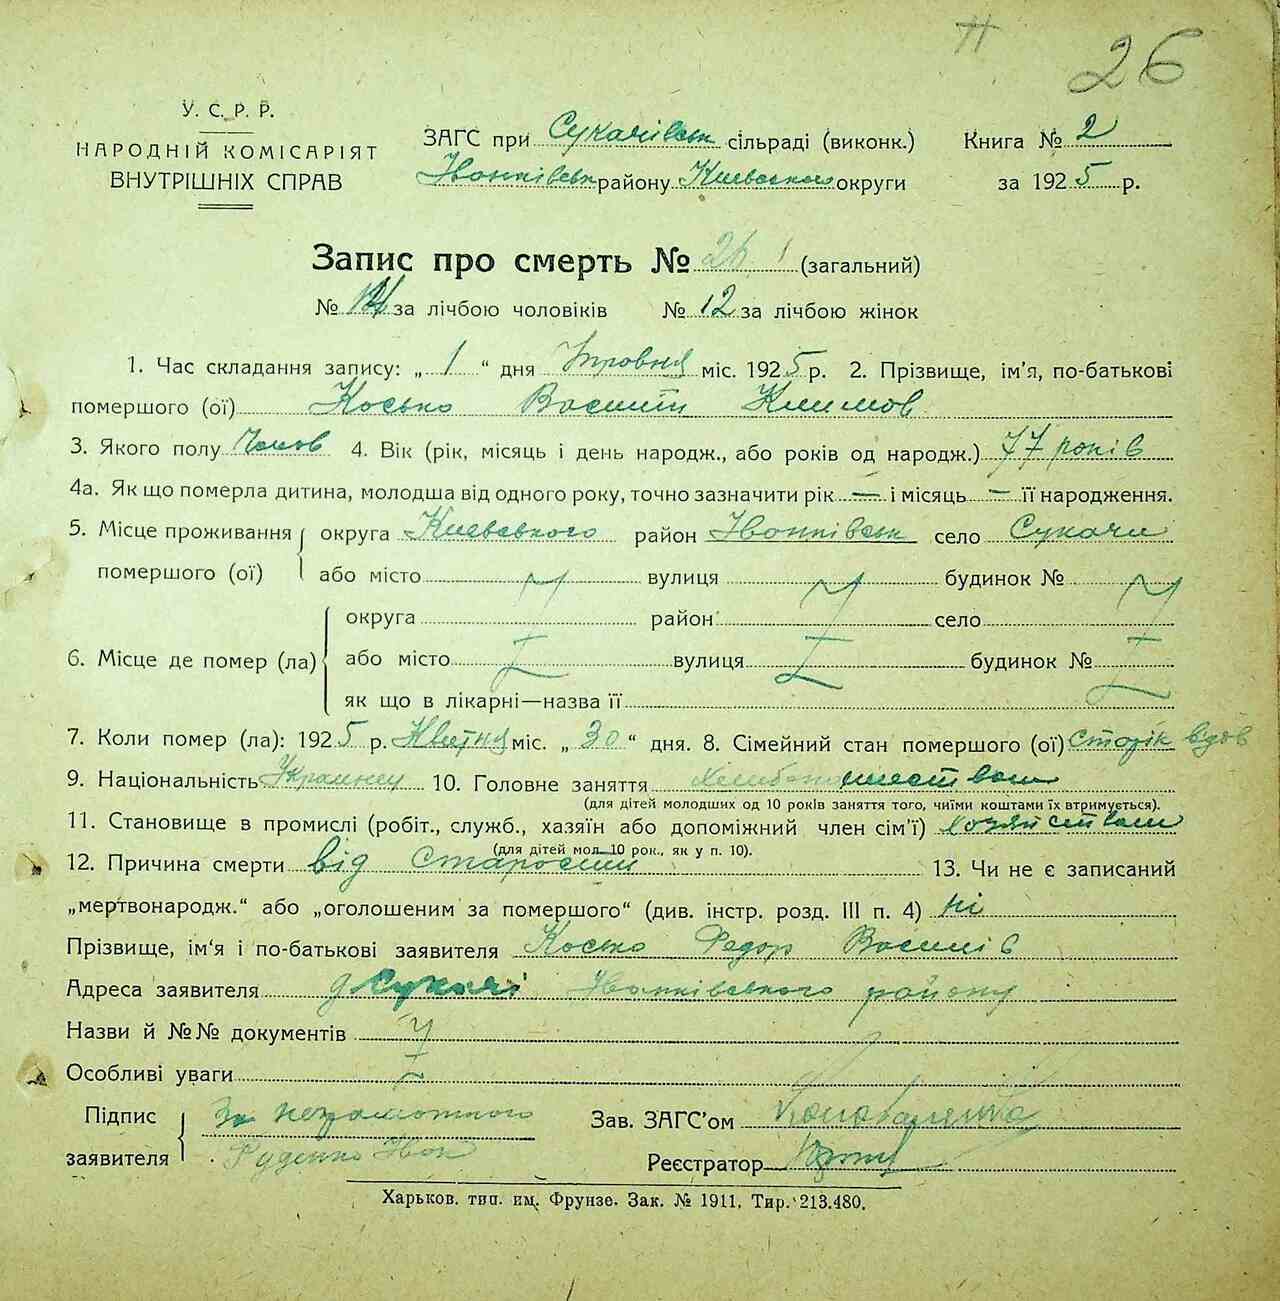 26
У. С. Р. Р.
НАРОДНІЙ КОМІСАРІЯТ
ВНУТРІШНІХ СПРАВ
ЗАГС при Сукачівськ сільраді (виконк.)
Іванківськ району Киевского округи
Книга № 2
за 1925 р.
Запис про смерть № 26 (загальний)
№ за лічбою чоловіків № 12 за лічбою жінок
1. Час складання запису: „ 1 “ дня Травня міс. 1925 р. 2. Прізвище, ім’я, по-батькові
помершого (ої) Косько Василь Климов
3. Якого полу Чолов 4. Вік (рік, місяць і день народж., або років од народж.) 77 років
4а. Як що померла дитина, молодша від одного року, точно зазначити рік — і місяць — її народження.
5. Місце проживання помершого (ої) округа Киевського район Іванківськ село Сукачи
або місто вулиця будинок №
6. Місце де помер (ла) округа район село
або місто вулиця будинок №
як що в лікарні—назва її
7. Коли помер (ла): 1925 р. Квітня міс. „ 30 “ дня. 8. Сімейний стан помершого (ої) вдов
9. Національність Украинец 10. Головне заняття
(для дітей молодших од 10 років заняття того, чиїми коштами їх втримується).
11. Становище в промислі (робіт., служб., хазяїн або допоміжний член сім’ї)
(для дітей мол. 10 рок., як у п. 10).
12. Причина смерти від старости 13. Чи не є записаний
„мертвонародж.“ або „оголошеним за помершого“ (див. інстр. розд. III п. 4) ні
Прізвище, ім’я і по-батькові заявителя Косько Федор Василів
Адреса заявителя Сукачі Іванківського району
Назви й №№ документів
Особливі уваги
Підпис заявителя За неграмотного
Руденко Іван
Зав. ЗАГС’ом
Реєстратор
Харьков. тип. им. Фрунзе. Зак. № 1911. Тир. 213.480.